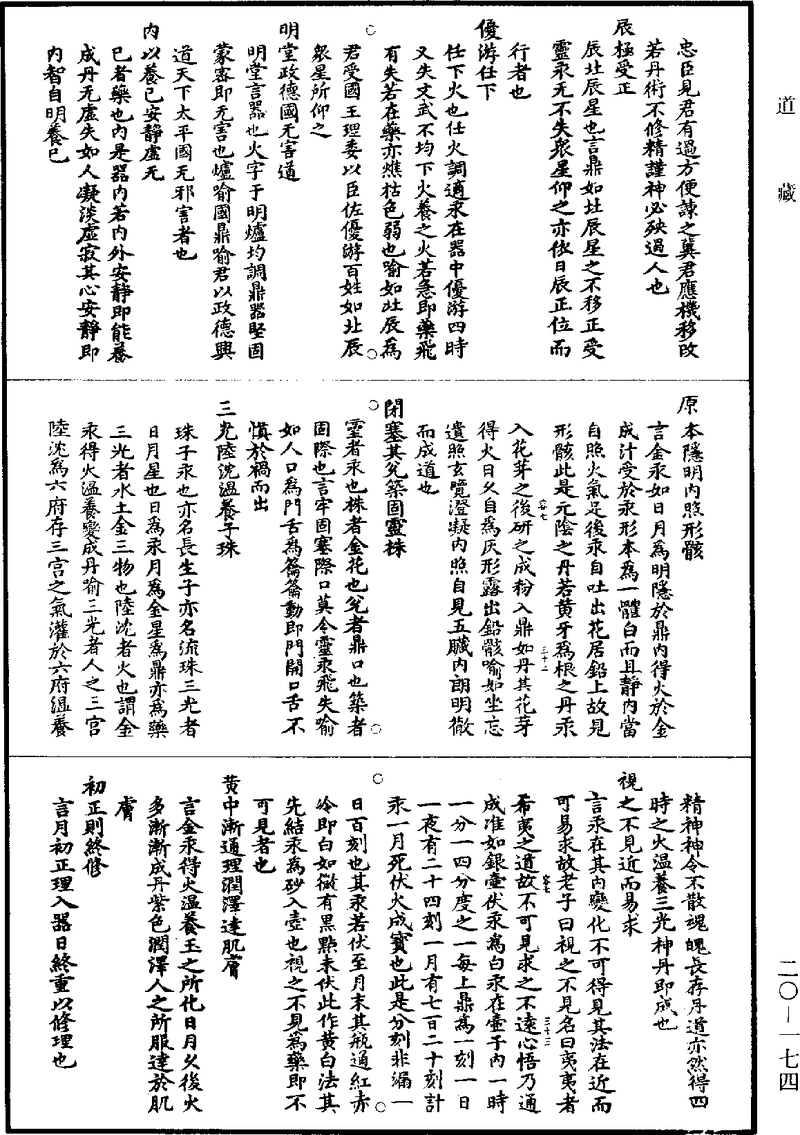 道藏
忠臣見君有過方便諫之冀君應機移改
若丹術不修精謹神必殃過人也
辰極受正
辰北辰星也言鼎如北辰星之不移正受
靈汞无不失衆星仰之亦依日辰正位而
行者也
優游任下
任下火也任火調適汞在器中優游四時
又失文武不均下火養之火若急即藥飛
有失若在藥亦燋枯色弱也喻如北辰為
君受國王理委以臣佐優游百姓如北辰
衆星所仰之
明堂政德國无害道
明堂言器也火字于明爐均調鼎器堅固
蒙密即无害也爐喻國鼎喻君以政德興
道天下太平國无邪害者也
内以養已安靜虛无
已者藥也内是器内若内外安靜即能養
成丹无虛失如人凝淡虛寂其心安靜即
内智自明養已
原本隱明内照形骸
言金汞如日月為明隱於鼎内得火於金
成汁受於汞形本為一體白而且靜内當
自照火氣足後汞自吐出花居鉛上故見
形骸此是元陰之丹若黄牙為根之丹汞
入花芽之後研之成粉入鼎如丹其花芽
得火日久自為灰形露出鉛骸喻如坐忘
遺照玄覽澄凝内照自見五臟内朗明徹
而成道也
閉塞其兌築固靈株
靈者汞也株者金花也兌者鼎口也築者
固際也言牢固塞際口莫令靈汞飛失喻
如人口為門舌為籥籥動即門開口舌不
慎於禍而出
三光陸沈温養子珠
珠子汞也亦名長生子亦名流珠三光者
日月星也日為汞月為金星為鼎亦為藥
三光者水土金三物也陸沈者火也謂金
汞得火温養變成丹喻三光者人之三宫
陸沈為六府存三宫之氣灌於六府温養
精神神令不散魂魄長存丹道亦然得四
時之火温養三光神丹即成也
視之不見近而易求
言汞在其内變化不可得見其法在近而
可易求故老子曰視之不見名曰夷夷者
希夷之道故不可見求之不遠心悟乃通
成准如銀壺伏汞為白汞在壺子内一時
一分一四分度之一每上鼎為一刻一日
一夜有二十四刻一月有七百二十刻計
汞一月死伏火成寶也此是分刻非漏一
日百刻也其汞若伏至月末其瓶通紅赤
冷即白如微有黑點未伏此作黄白法其
先結汞為砂入壺也視之不見為藥即不
可見者也
黄中漸通理潤澤達肌膚
言金汞得火温養玉之所化日月久後火
多漸漸成丹紫色潤澤人之所服達於肌
膚
初正則終修
言月初正理入器日終重以修理也
二〇—一七四